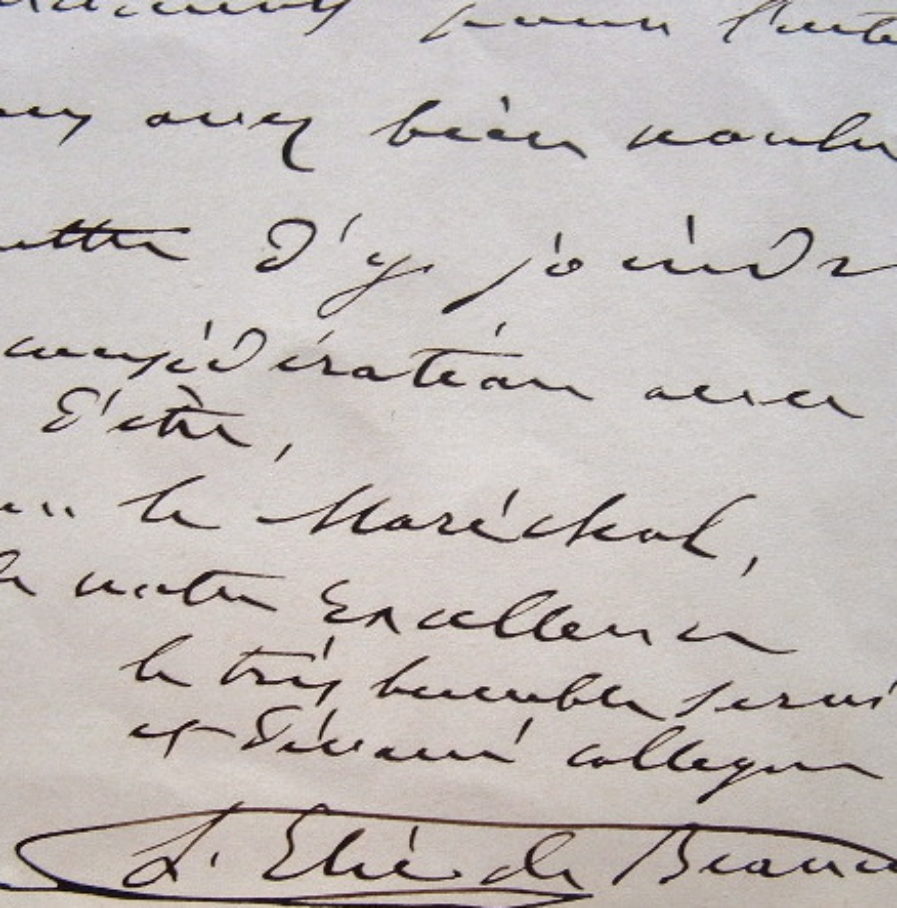 pour l'inté
avez bien voulu
ettre d'y joindr
considération avec
d'être,
le Maréchal,
de votre Excellence
le très humble servi
et dévoué collègue
L. Elie de Beaum